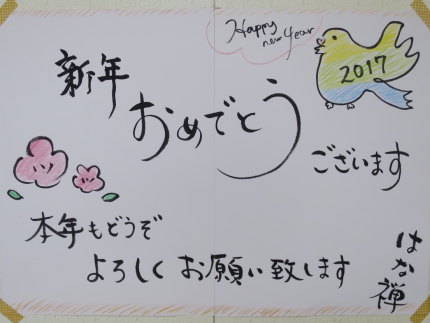 Happy
new year
2017
新年
おめでとう
ございます
本年もどうぞ
よろしくお願い致します
はな禅